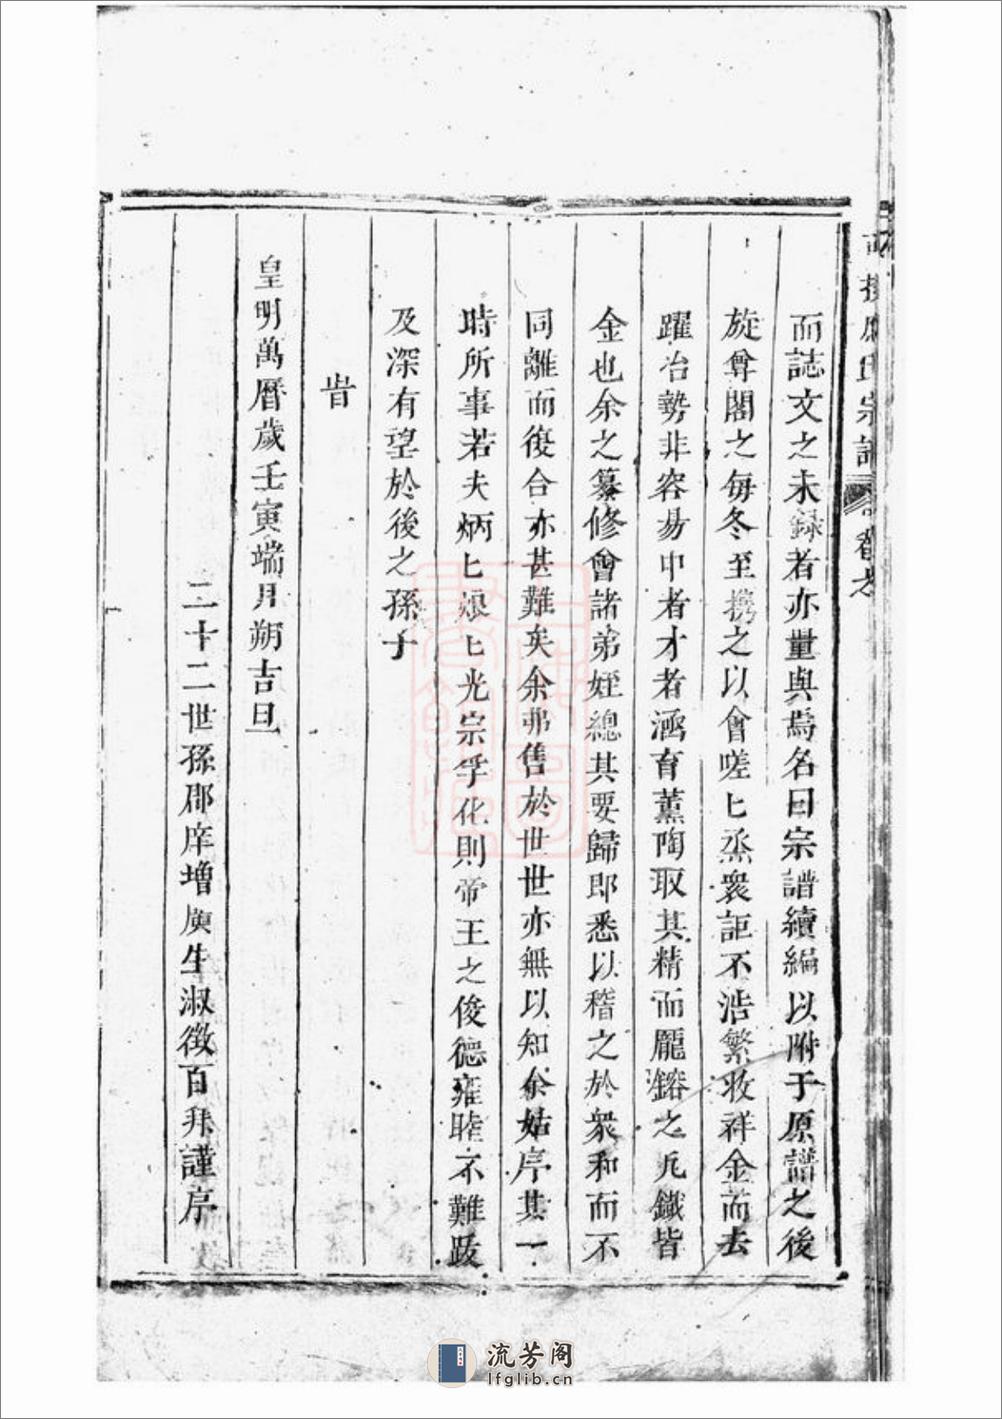 氏宗譜
而誌文之未録者亦量與焉名曰宗譜續編以附于原譜之後
旋尊閣之每冬至携之以會嗟匕烝衆詎不浩繁收祥金而去
躍冶勢非容昜中者才者涵育薫陶取其精而龐鎔之凢鐡皆
金也余之纂修會諸弟姪總其要歸即悉以稽之於衆和而不
同離而復合亦甚難矣余弗售於世世亦無以知余姑序其一
時所事若夫炳匕烺匕光宗孚化則帝王之俊德雍睦不難跋
及深有望於後之孫子
旹
皇明萬曆歲壬寅端月朔吉旦
二十二世孫郡庠增廣生淑徵百拜謹序
流芳阁
lfglib.cn